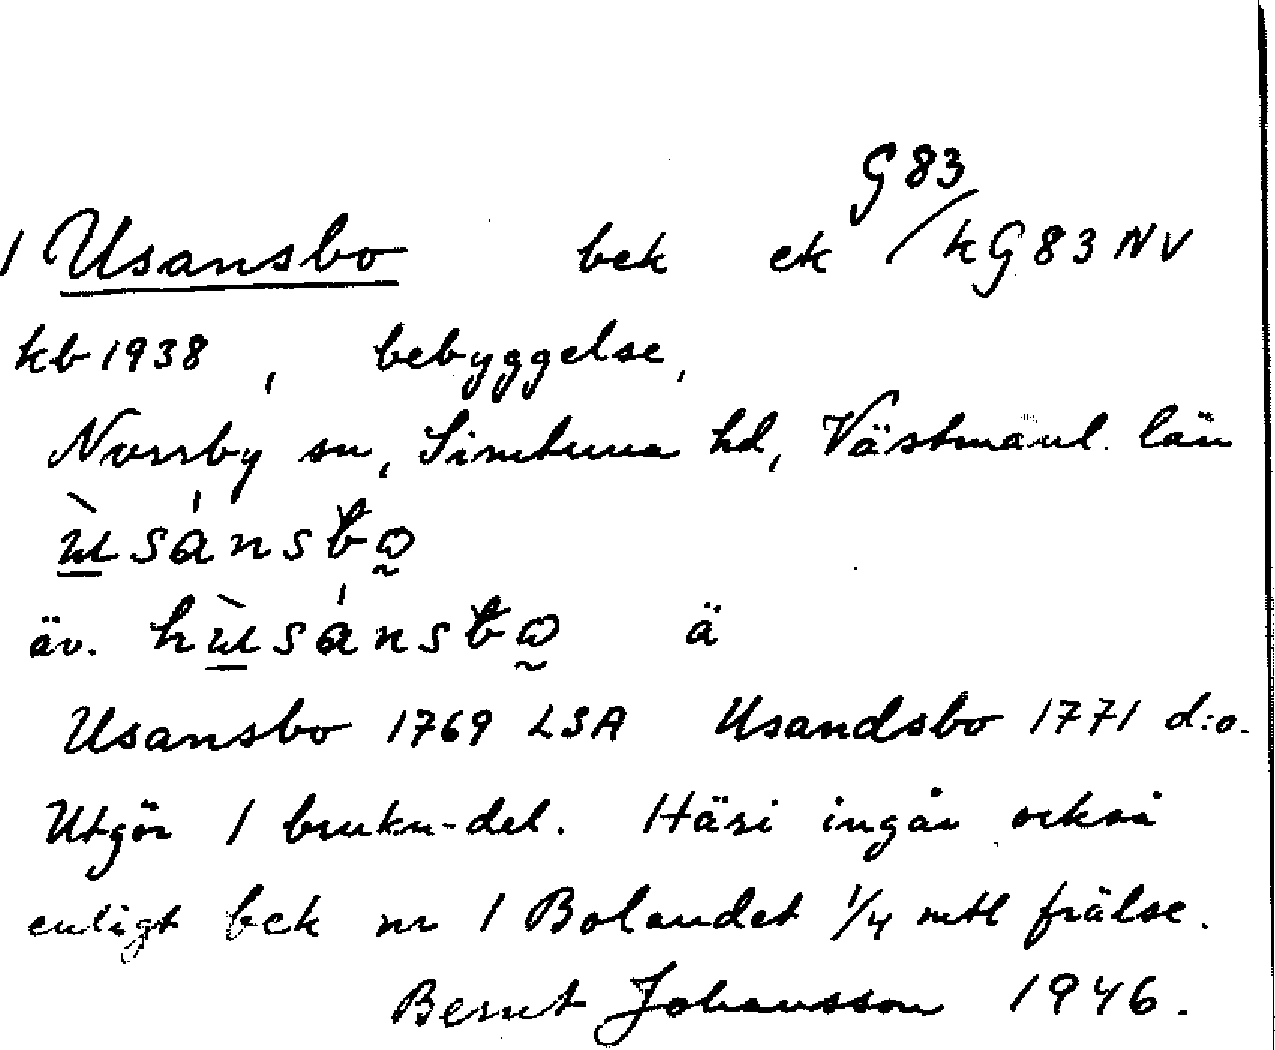 G 83
1 Usansbo bek ek / kG 83 NV
kb 1938, bebyggelse,
Norrby sn, Simtuna hd, Västmanl. län
ùsánsbo
äv. hùsánsbo ä
Usansbo 1769 LSA Usandsbo 1771 d:o.
Utgör 1 brukn-del. Häri ingår också
enligt bek nr 1 Bolandet 1/4 mtl frälse.
Bernt Johansson 1946.